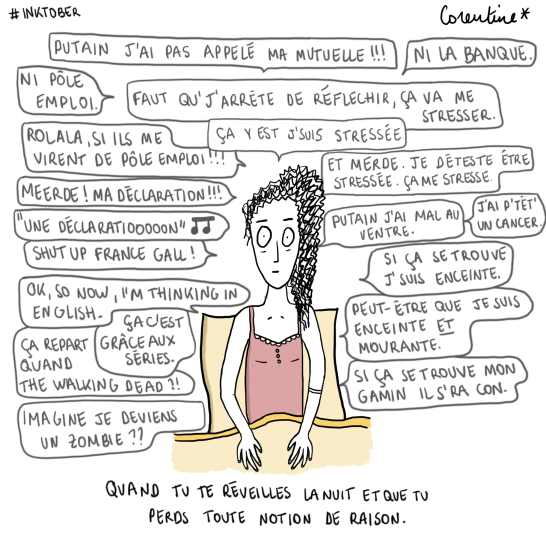 #INKTOBER
Corentine*
PUTAIN J'AI PAS APPELÉ MA MUTUELLE !!!
NI LA BANQUE.
NI PÔLE
EMPLOI.
FAUT QU'J'ARRÊTE DE RÉFLECHIR, ÇA VA ME
STRESSER.
ROLALA, SI ILS ME
VIRENT DE PÔLE EMPLOI !!!
ÇA Y EST J'SUIS STRESSÉE
ET MERDE. JE DÉTESTE ÊTRE
STRESSÉE. ÇA ME STRESSE.
MEERDE ! MA DÉCLARATION !!!
"UNE DÉCLARATIOOOOON" 🎵
SHUT UP FRANCE GALL !
PUTAIN J'AI MAL AU
VENTRE.
J'AI P'TÊT'
UN CANCER.
SI ÇA SE TROUVE
J'SUIS ENCEINTE.
OK, SO NOW, I'M THINKING IN
ENGLISH.
ÇA C'EST
GRÂCE AUX
SÉRIES.
PEUT-ÊTRE QUE JE SUIS
ENCEINTE ET
MOURANTE.
ÇA REPART
QUAND
THE WALKING DEAD ?!
SI ÇA SE TROUVE MON
GAMIN IL S'RA CON.
IMAGINE JE DEVIENS
UN ZOMBIE ??
QUAND TU TE RÉVEILLES LA NUIT ET QUE TU
PERDS TOUTE NOTION DE RAISON.